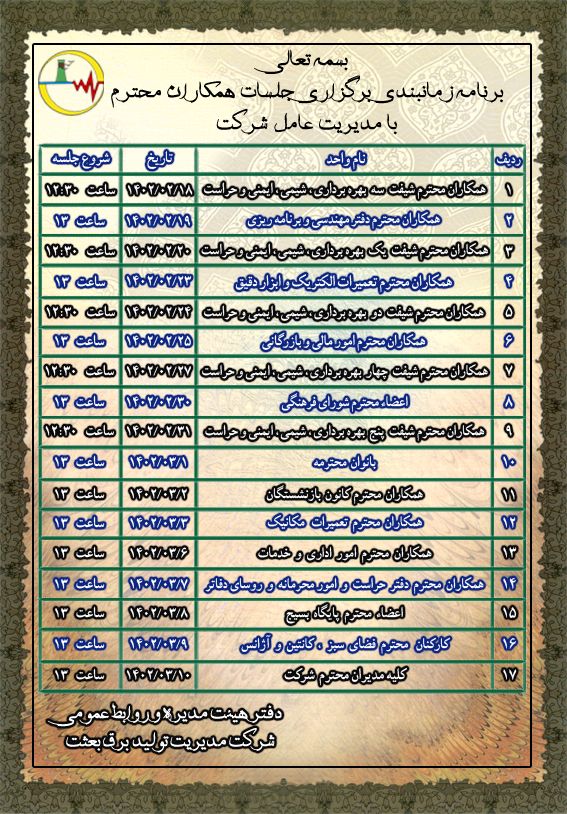 بسمه تعالی
برنامه زمانبندی برگزاری جلسات همکاران محترم
با مدیریت عامل شرکت
ردیف نام واحد تاریخ شروع جلسه
۱ همکاران محترم شیفت سه بهره برداری، شیمی، ایمنی و حراست ۱۴۰۲/۰۲/۱۸ ساعت ۱۲:۳۰
۲ همکاران محترم دفتر مهندسی و برنامه ریزی ۱۴۰۲/۰۲/۱۹ ساعت ۱۳
۳ همکاران محترم شیفت یک بهره برداری، شیمی، ایمنی و حراست ۱۴۰۲/۰۲/۲۰ ساعت ۱۲:۳۰
۴ همکاران محترم تعمیرات الکتریک و ابزار دقیق ۱۴۰۲/۰۲/۲۳ ساعت ۱۳
۵ همکاران محترم شیفت دو بهره برداری، شیمی، ایمنی و حراست ۱۴۰۲/۰۲/۲۴ ساعت ۱۲:۳۰
۶ همکاران محترم امور مالی و بازرگانی ۱۴۰۲/۰۲/۲۵ ساعت ۱۳
۷ همکاران محترم شیفت چهار بهره برداری، شیمی، ایمنی و حراست ۱۴۰۲/۰۲/۲۷ ساعت ۱۲:۳۰
۸ اعضاء محترم شورای فرهنگی ۱۴۰۲/۰۲/۳۰ ساعت ۱۳
۹ همکاران محترم شیفت پنج بهره برداری، شیمی، ایمنی و حراست ۱۴۰۲/۰۲/۳۱ ساعت ۱۲:۳۰
۱۰ بانوان محترمه ۱۴۰۲/۰۳/۱ ساعت ۱۳
۱۱ همکاران محترم کانون بازنشستگان ۱۴۰۲/۰۳/۲ ساعت ۱۳
۱۲ همکاران محترم تعمیرات مکانیک ۱۴۰۲/۰۳/۳ ساعت ۱۳
۱۳ همکاران محترم امور اداری و خدمات ۱۴۰۲/۰۳/۶ ساعت ۱۳
۱۴ همکاران محترم دفتر حراست و امور محرمانه و روسای دفاتر ۱۴۰۲/۰۳/۷ ساعت ۱۳
۱۵ اعضاء محترم پایگاه بسیج ۱۴۰۲/۰۳/۸ ساعت ۱۳
۱۶ کارکنان محترم فضای سبز، کانتین و آژانس ۱۴۰۲/۰۳/۹ ساعت ۱۳
۱۷ کلیه مدیران محترم شرکت ۱۴۰۲/۰۳/۱۰ ساعت ۱۳
دفتر هیئت مدیره و روابط عمومی
شرکت مدیریت تولید برق بعثت